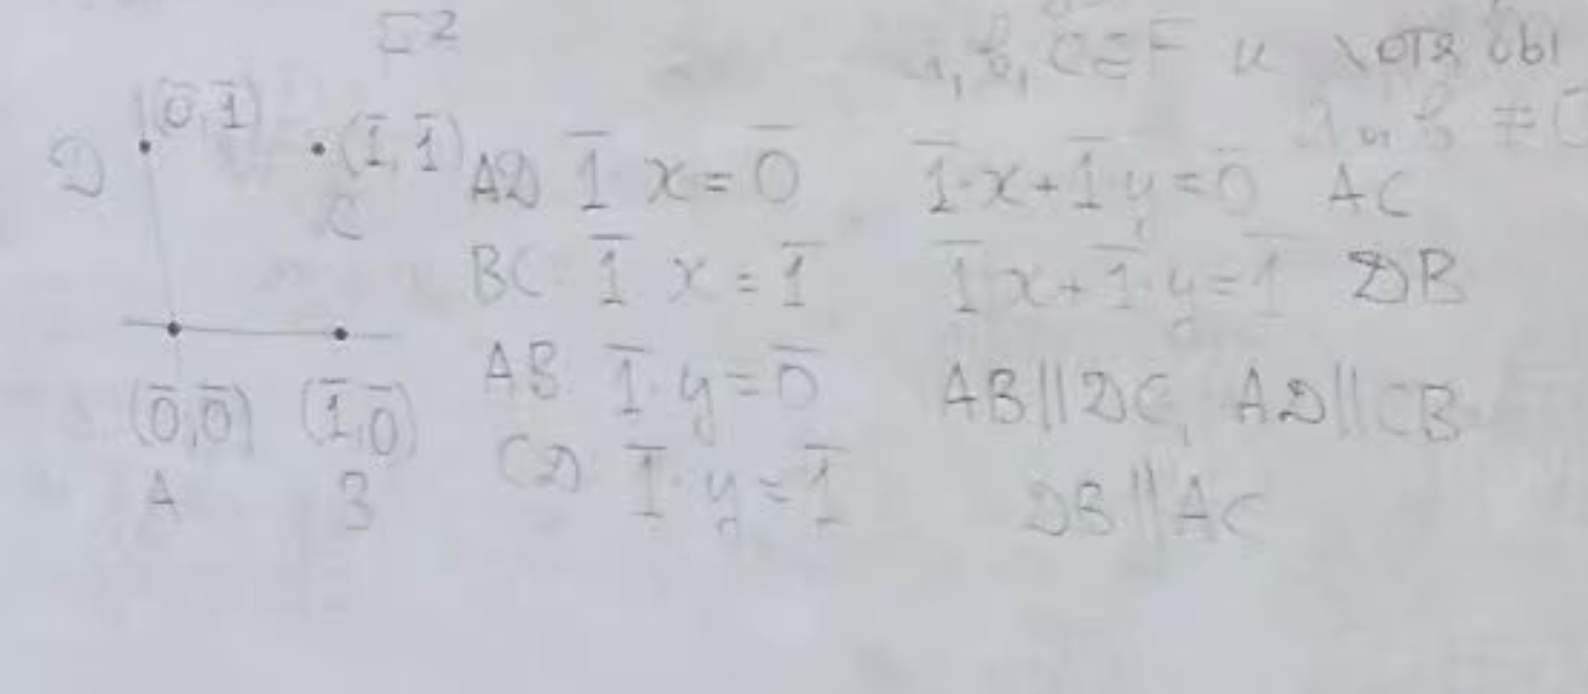 F²
a, b, c ∈ F и хотя бы
a и b ≠ 0̅
(0̅, 1̅)
D
(1̅, 1̅)
C
AD 1̅ x = 0̅
1̅·x + 1̅ y = 0̅ AC
BC: 1̅ x = 1̅
1̅ x + 1̅·y = 1̅ DB
AB: 1̅·y = 0̅
AB || DC, AD || CB
(0̅,0̅) (1̅,0̅)
CD: 1̅·y = 1̅
A B
DB || AC